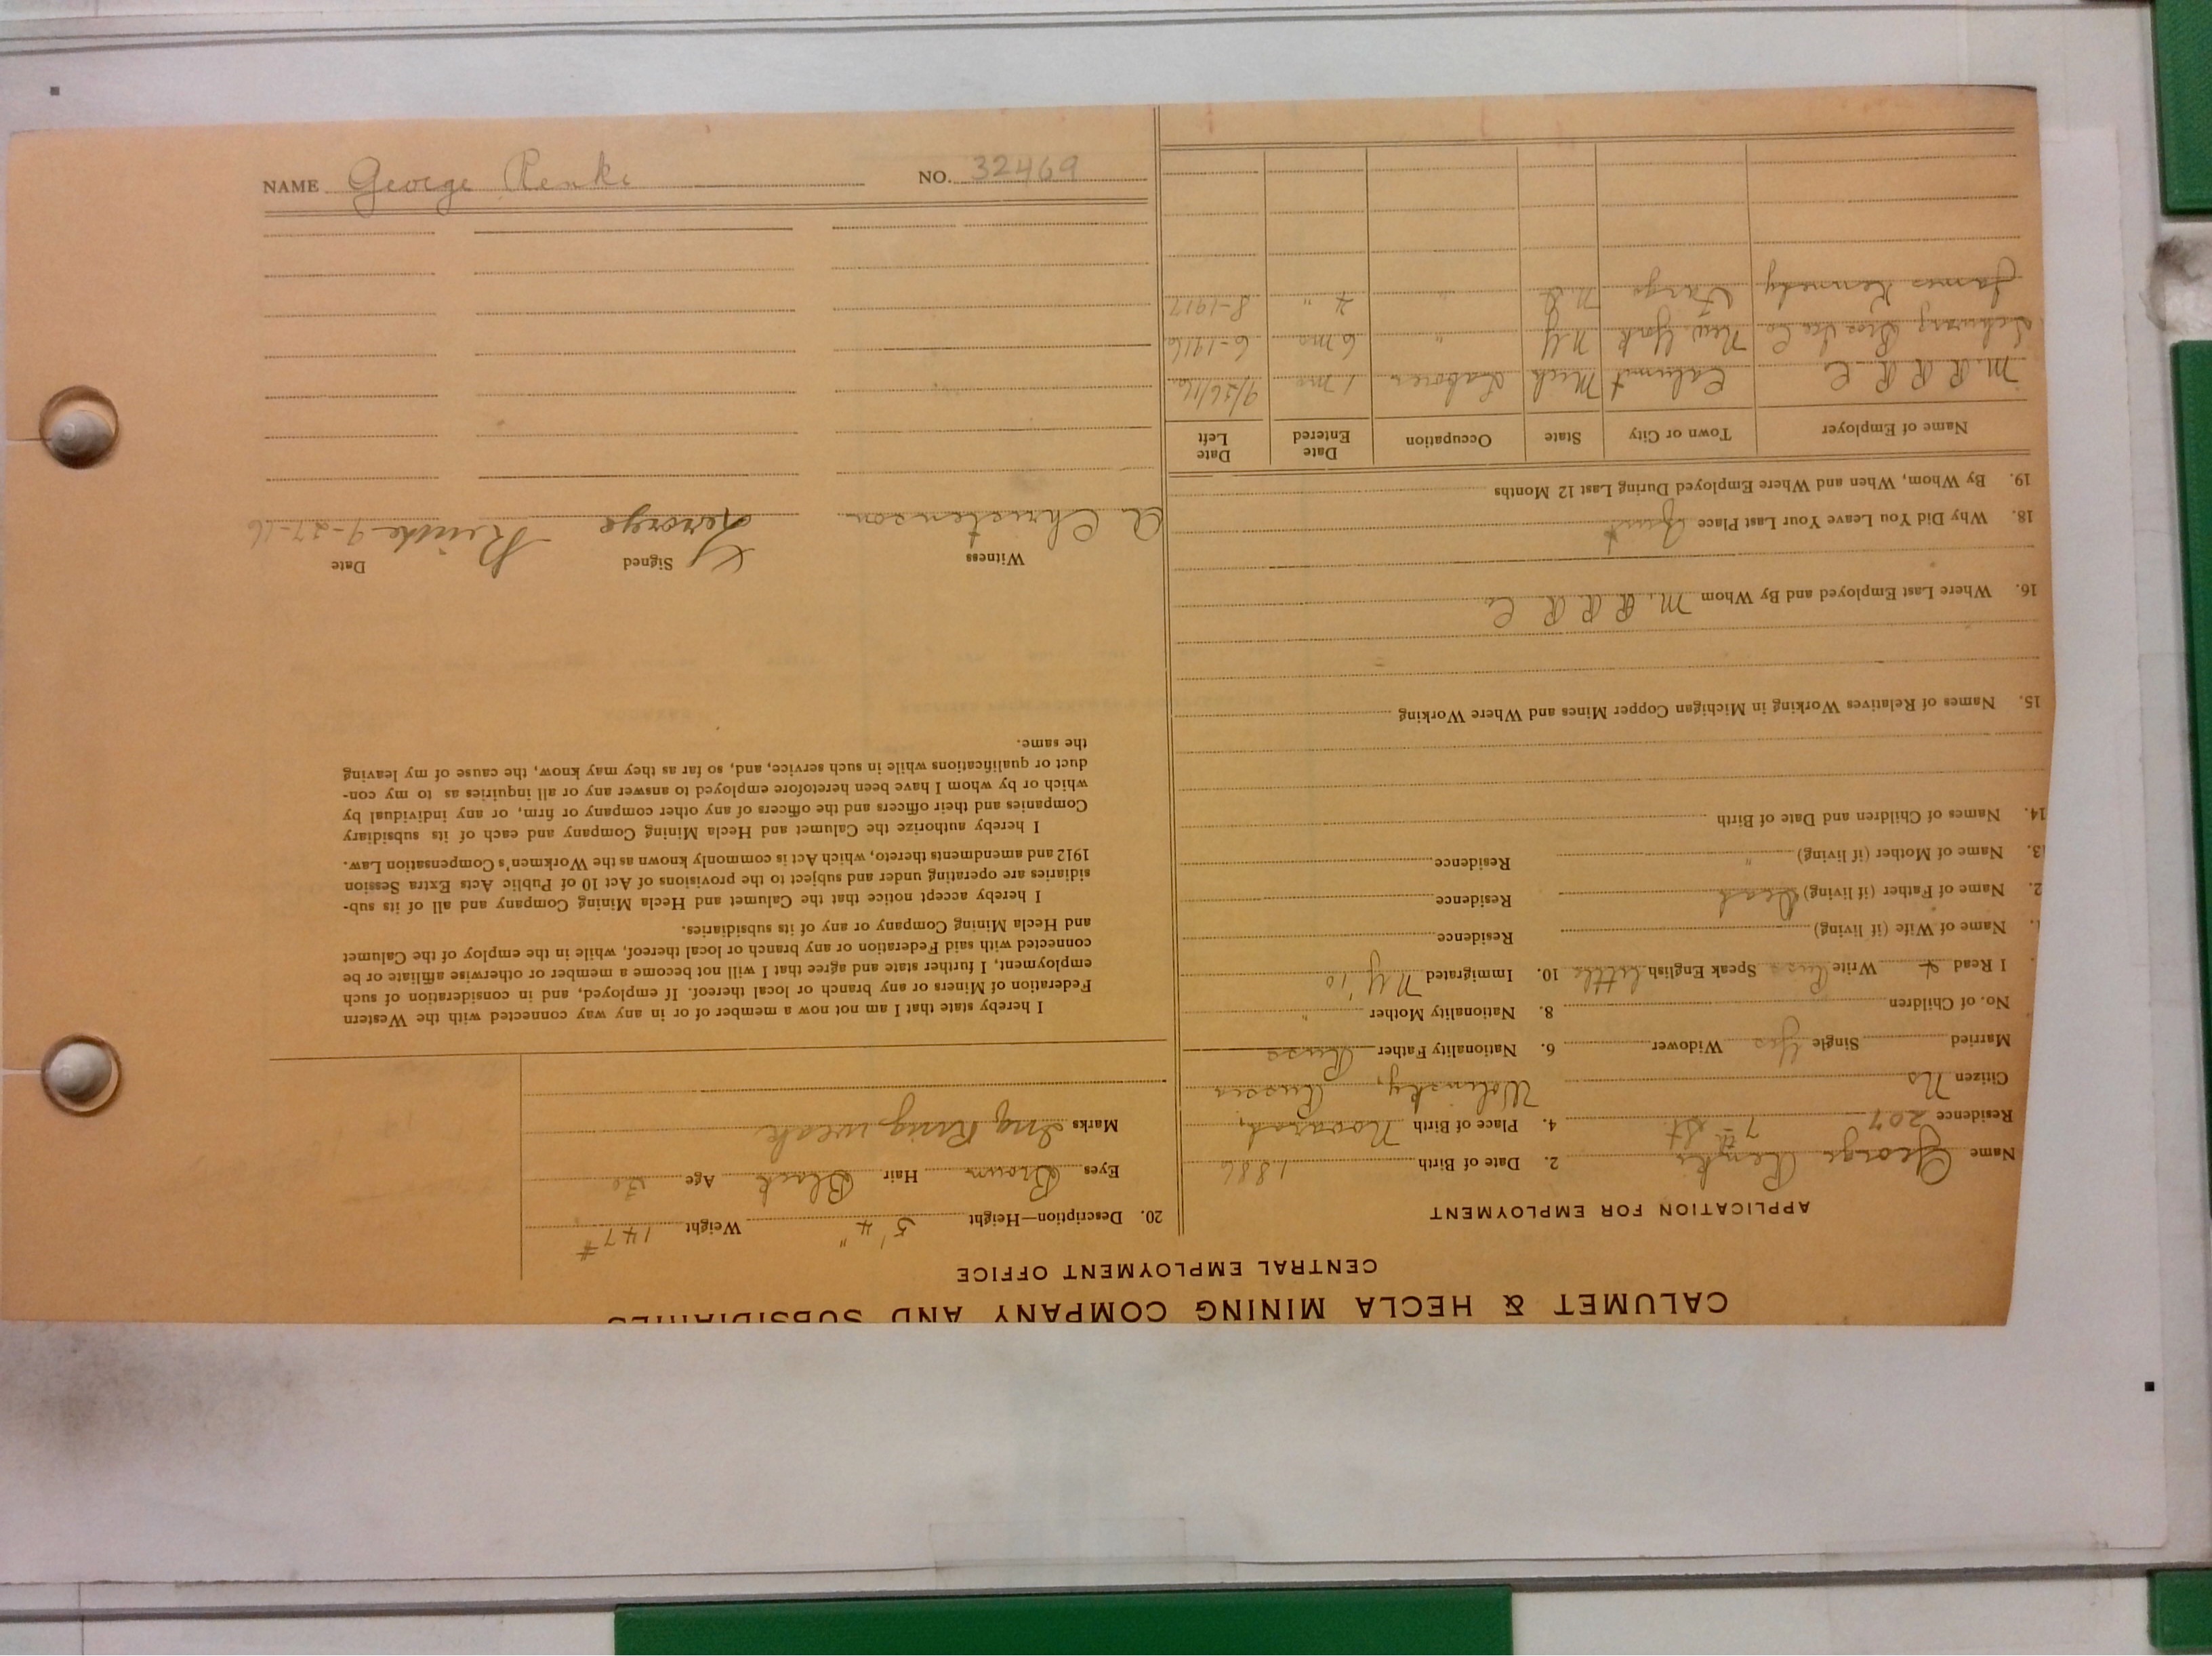 NAME George Renke NO. 32469
CALUMET & HECLA MINING COMPANY AND SUBSIDIARIES
CENTRAL EMPLOYMENT OFFICE
APPLICATION FOR EMPLOYMENT
Name George Renke 2. Date of Birth 1886
Residence 207 7th St. 4. Place of Birth
Citizen No Wolinsky, Russia
Married Single Yes Widower 6. Nationality Father Russ
No. of Children 8. Nationality Mother "
I Read & Write Russ Speak English little 10. Immigrated N.Y. '10
Name of Wife (if living) Residence
2. Name of Father (if living) Dead Residence
3. Name of Mother (if living) " Residence
14. Names of Children and Date of Birth
15. Names of Relatives Working in Michigan Copper Mines and Where Working
16. Where Last Employed and By Whom M. R. R. R. Co
18. Why Did You Leave Your Last Place Quit
19. By Whom, When and Where Employed During Last 12 Months
Name of Employer Town or City State Occupation Date Entered Date Left
M. R. R. R. C Calumet Mich Laborer 1 mo 9/26/16
New York N.Y " 6 mo 6-1916
James Kennedy Fargo N.D " 4 " 8-1917
20. Description—Height 5' 4" Weight 147#
Eyes Brown Hair Black Age 30
Marks
I hereby state that I am not now a member of or in any way connected with the Western
Federation of Miners or any branch or local thereof. If employed, and in consideration of such
employment, I further state and agree that I will not become a member or otherwise affiliate or be
connected with said Federation or any branch or local thereof, while in the employ of the Calumet
and Hecla Mining Company or any of its subsidiaries.
I hereby accept notice that the Calumet and Hecla Mining Company and all of its sub-
sidiaries are operating under and subject to the provisions of Act 10 of Public Acts Extra Session
1912 and amendments thereto, which Act is commonly known as the Workmen's Compensation Law.
I hereby authorize the Calumet and Hecla Mining Company and each of its subsidiary
Companies and their officers and the officers of any other company or firm, or any individual by
which or by whom I have been heretofore employed to answer any or all inquiries as to my con-
duct or qualifications while in such service, and, so far as they may know, the cause of my leaving
the same.
Witness Signed Date
A Christenson 9-27-16